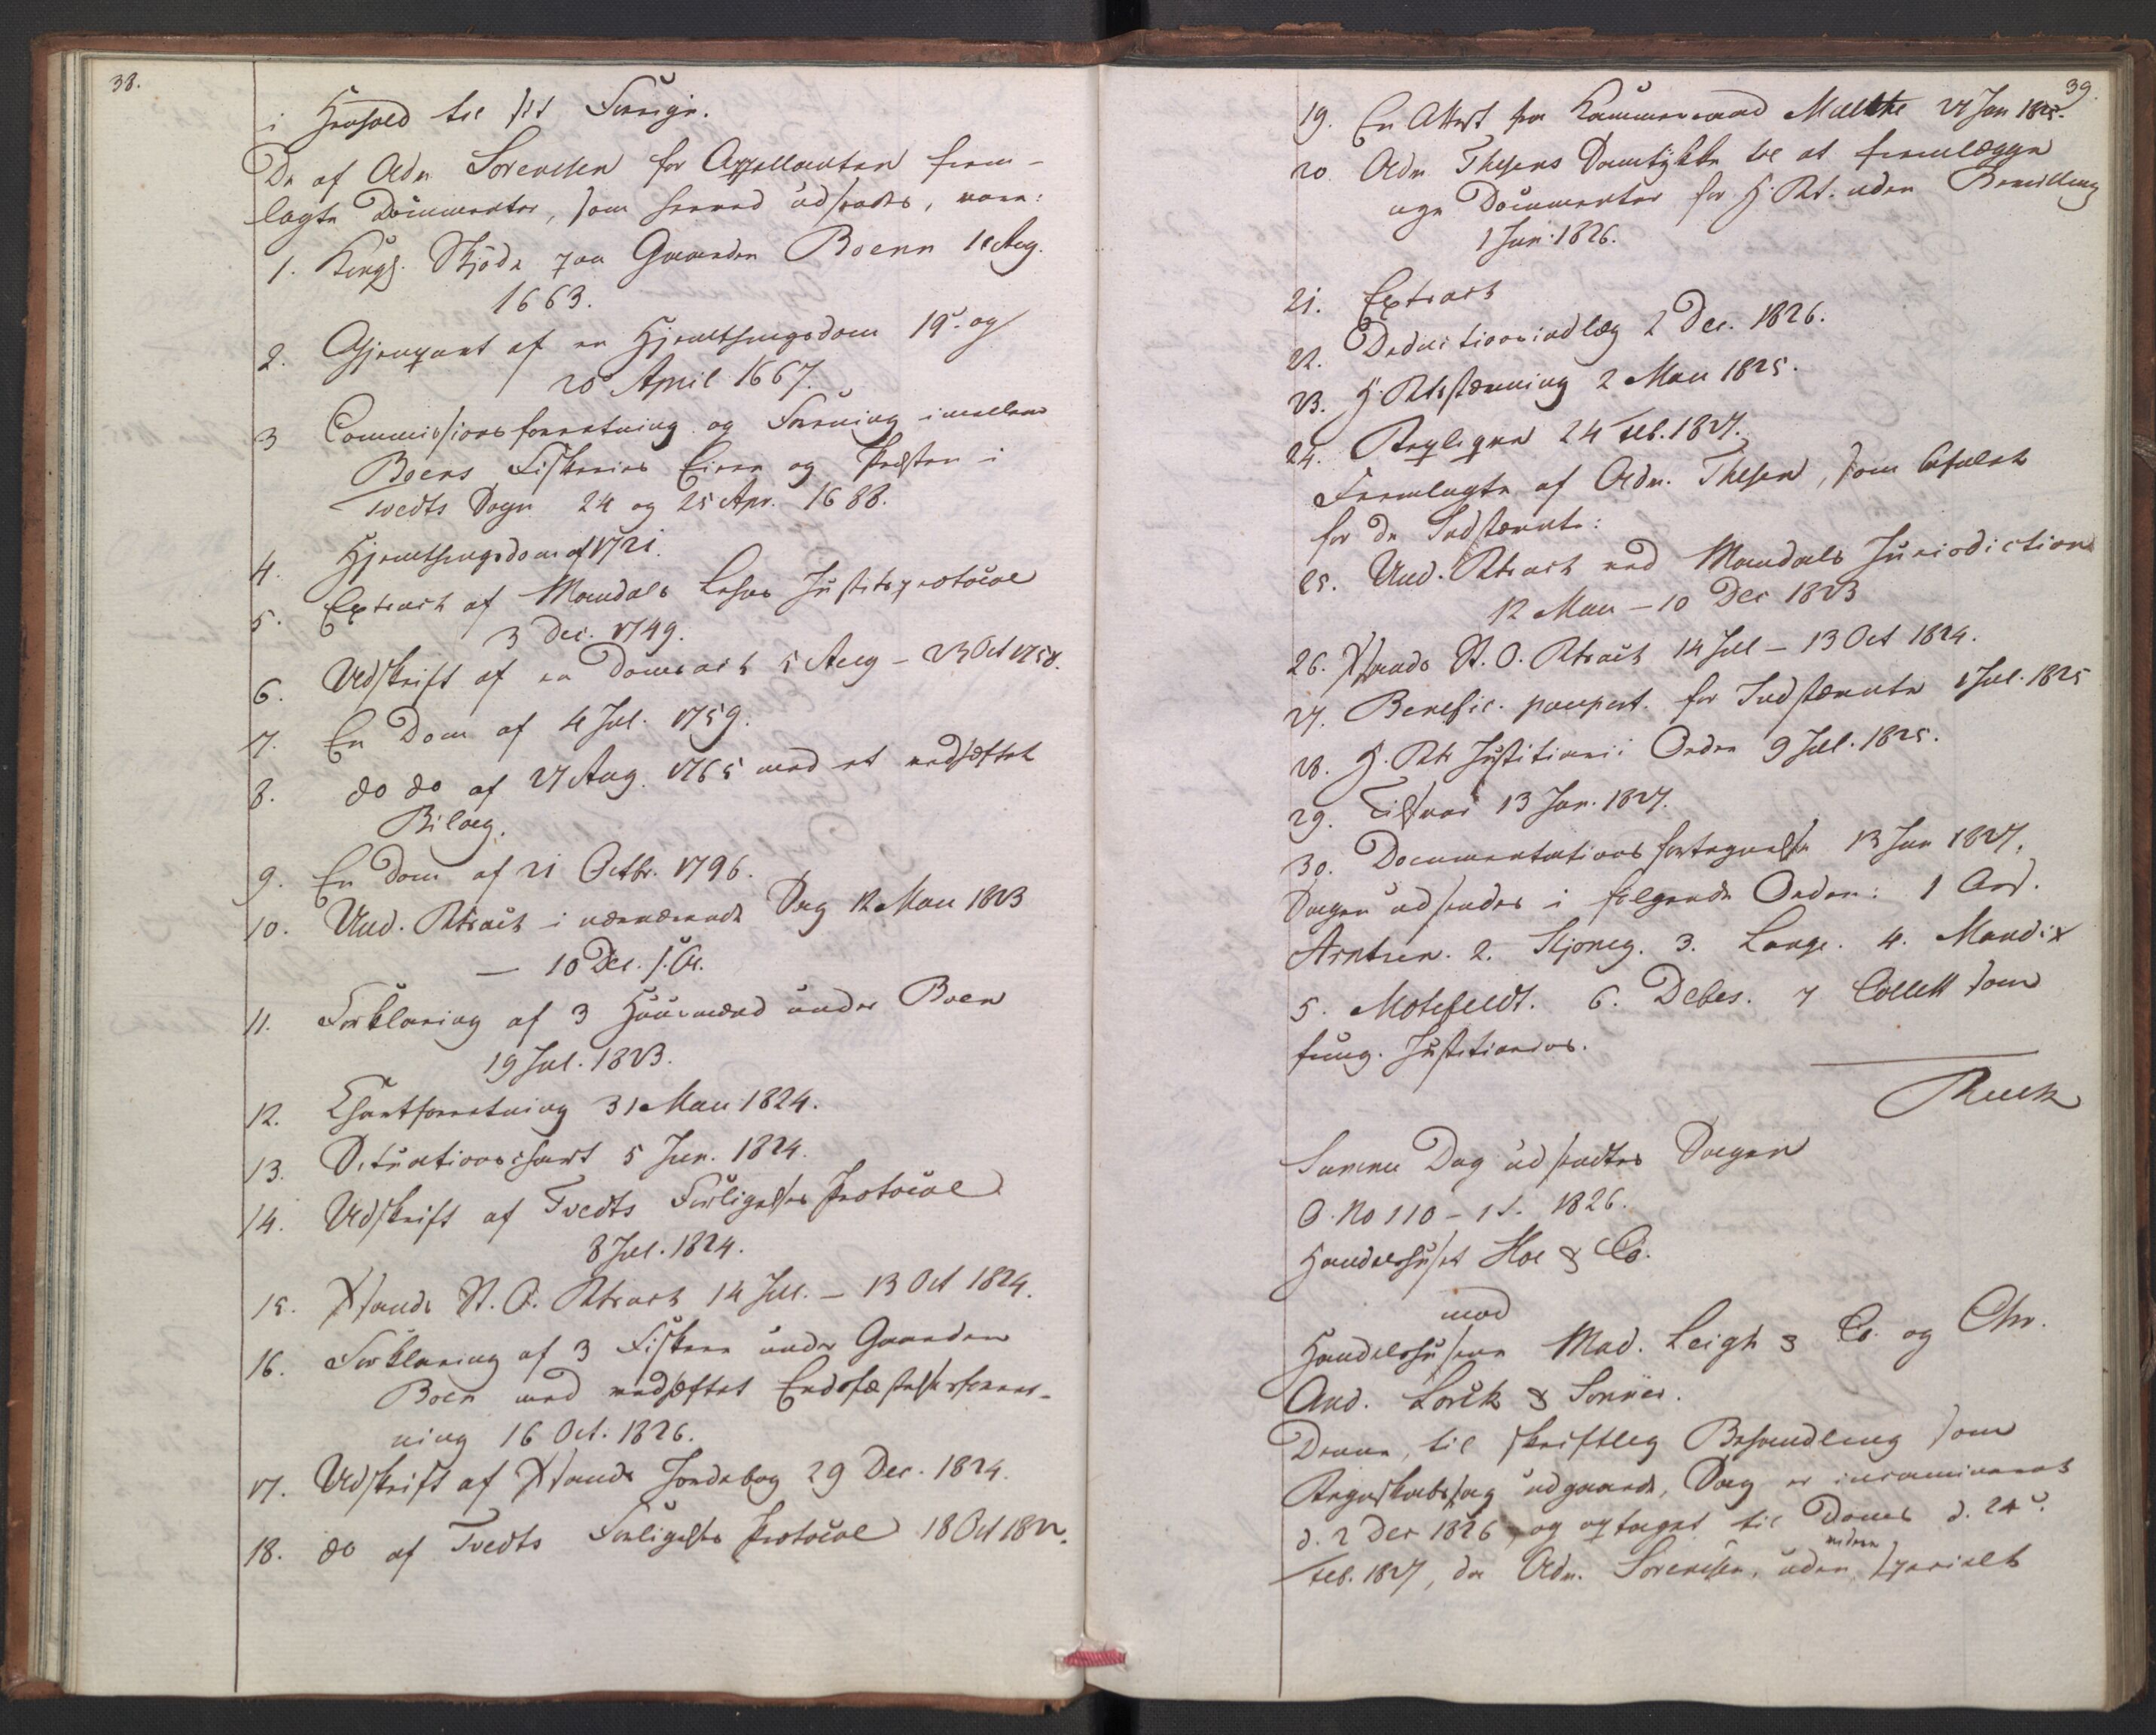 38.
i Henhold til sit Forrige.
De af Adv. Sorenssen for Appellanten frem-
lagte Documenter, som herved udstedes, vare:
1. Kongl. Skjøde paa Gaarden Boenn 10 Aug.
1663.
2. Gjenpart af en Hjemthingsdom 19de og
20de April 1667.
3 Commissionsforretning og Forening imellem
Boens Fiskeries Eiere og Præsten i
Tvedts Sogn 24 og 25 Apr. 1688.
4. Hjemthingsdom af 1721.
5. Extract af Mandals Lehns Justitsprotocol
3 Dec. 1749.
6. Udskrift af en Domsact 5 Aug – 23 Oct 1758.
7. En Dom af 4 Jul. 1759.
8. do do af 27 Aug. 1765 med et vedhæftet
Bilag.
9. En Dom af 21 Octbr. 1796.
10. Und. Rtsact i nærværende Sag 12 Mai 1823
— 10 Dec. s. A.
11. Forklaring af 3 Huusmænd under Boen
19 Jul. 1823.
12. Chartforretning 31 Mai 1824.
13. Situationschart 5 Jun. 1824.
14. Udskrift af Tvedts Forligelses Protocol
8 Jul. 1824.
15. Xsands St. O. Rtsact 14 Jul. – 13 Oct 1824.
16. Forklaring af 3 Fiskere under Gaarden
Boen med vedhæftet Eedsfæstelsesforret-
ning 16 Oct. 1826.
17. Udskrift af Xsands Jordebog 29 Dec. 1824.
18. do af Tvedts Forligelses Protocol 18 Oct 1822.
39.
19. En Attest fra Kammerraad Malthe 27 Jan 1825.
20 Adv. Thesens Samtykke til at fremlægge
nye Documenter for H. Rt. uden Bevilling
1 Jun. 1826.
21. Extract
22. Deductionsindlæg 2 Dec. 1826.
23. H. Rtsstævning 2 Mai 1825.
24. Repliqven 24 Feb. 1827.
Fremlagte af Adv. Thesen, som befalet
for de Indstævnte:
25. Und. Rtsact ved Mandals Jurisdiction
12 Mai – 10 Dec 1823
26. Xsands St. O. Rtsact 14 Jul – 13 Oct 1824.
27. Benefic. paupert. for Indstævnte 1 Jul. 1825
28. H. Rts Justitiarii Orden 9 Jul. 1825.
29. Tilsvar 13 Jan. 1827.
30. Documentationsfortegnelse 13 Jan 1827.
Sagen udstedes i følgende Orden: 1 Ass.
Arntzen. 2. Skjoneg. 3. Lange. 4. Mandix
5. Motzfeldt. 6. Debes. 7 Collett som
fung. Justitiarius.
Ruck
Samme Dag udstedtes Sagen
O. No 110 – 1 S. 1826.
Handelshuset Hoe & Co.
mod
Handelshusene Mad. Leigh & Co. og Chr.
And. Lorck & Sønner.
Denne, til skriftlig Behandling som
Regnskabssag udgaaede, Sag er incamineret
d. 2 Dec 1826 og optaget til Doms d. 24de
Feb. 1827, da Adv. Sorenssen, uden videre specielt